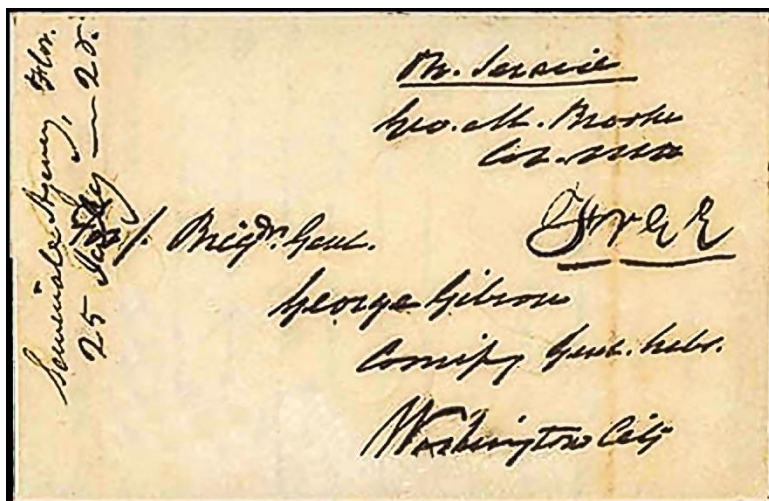 Seminole Agency, Flor.
25 July — 28.
On. Service
Geo. M. Brooke
Free
Brigr. Genl.
George Gibson
Comisy Genl. Subs.
Washington City